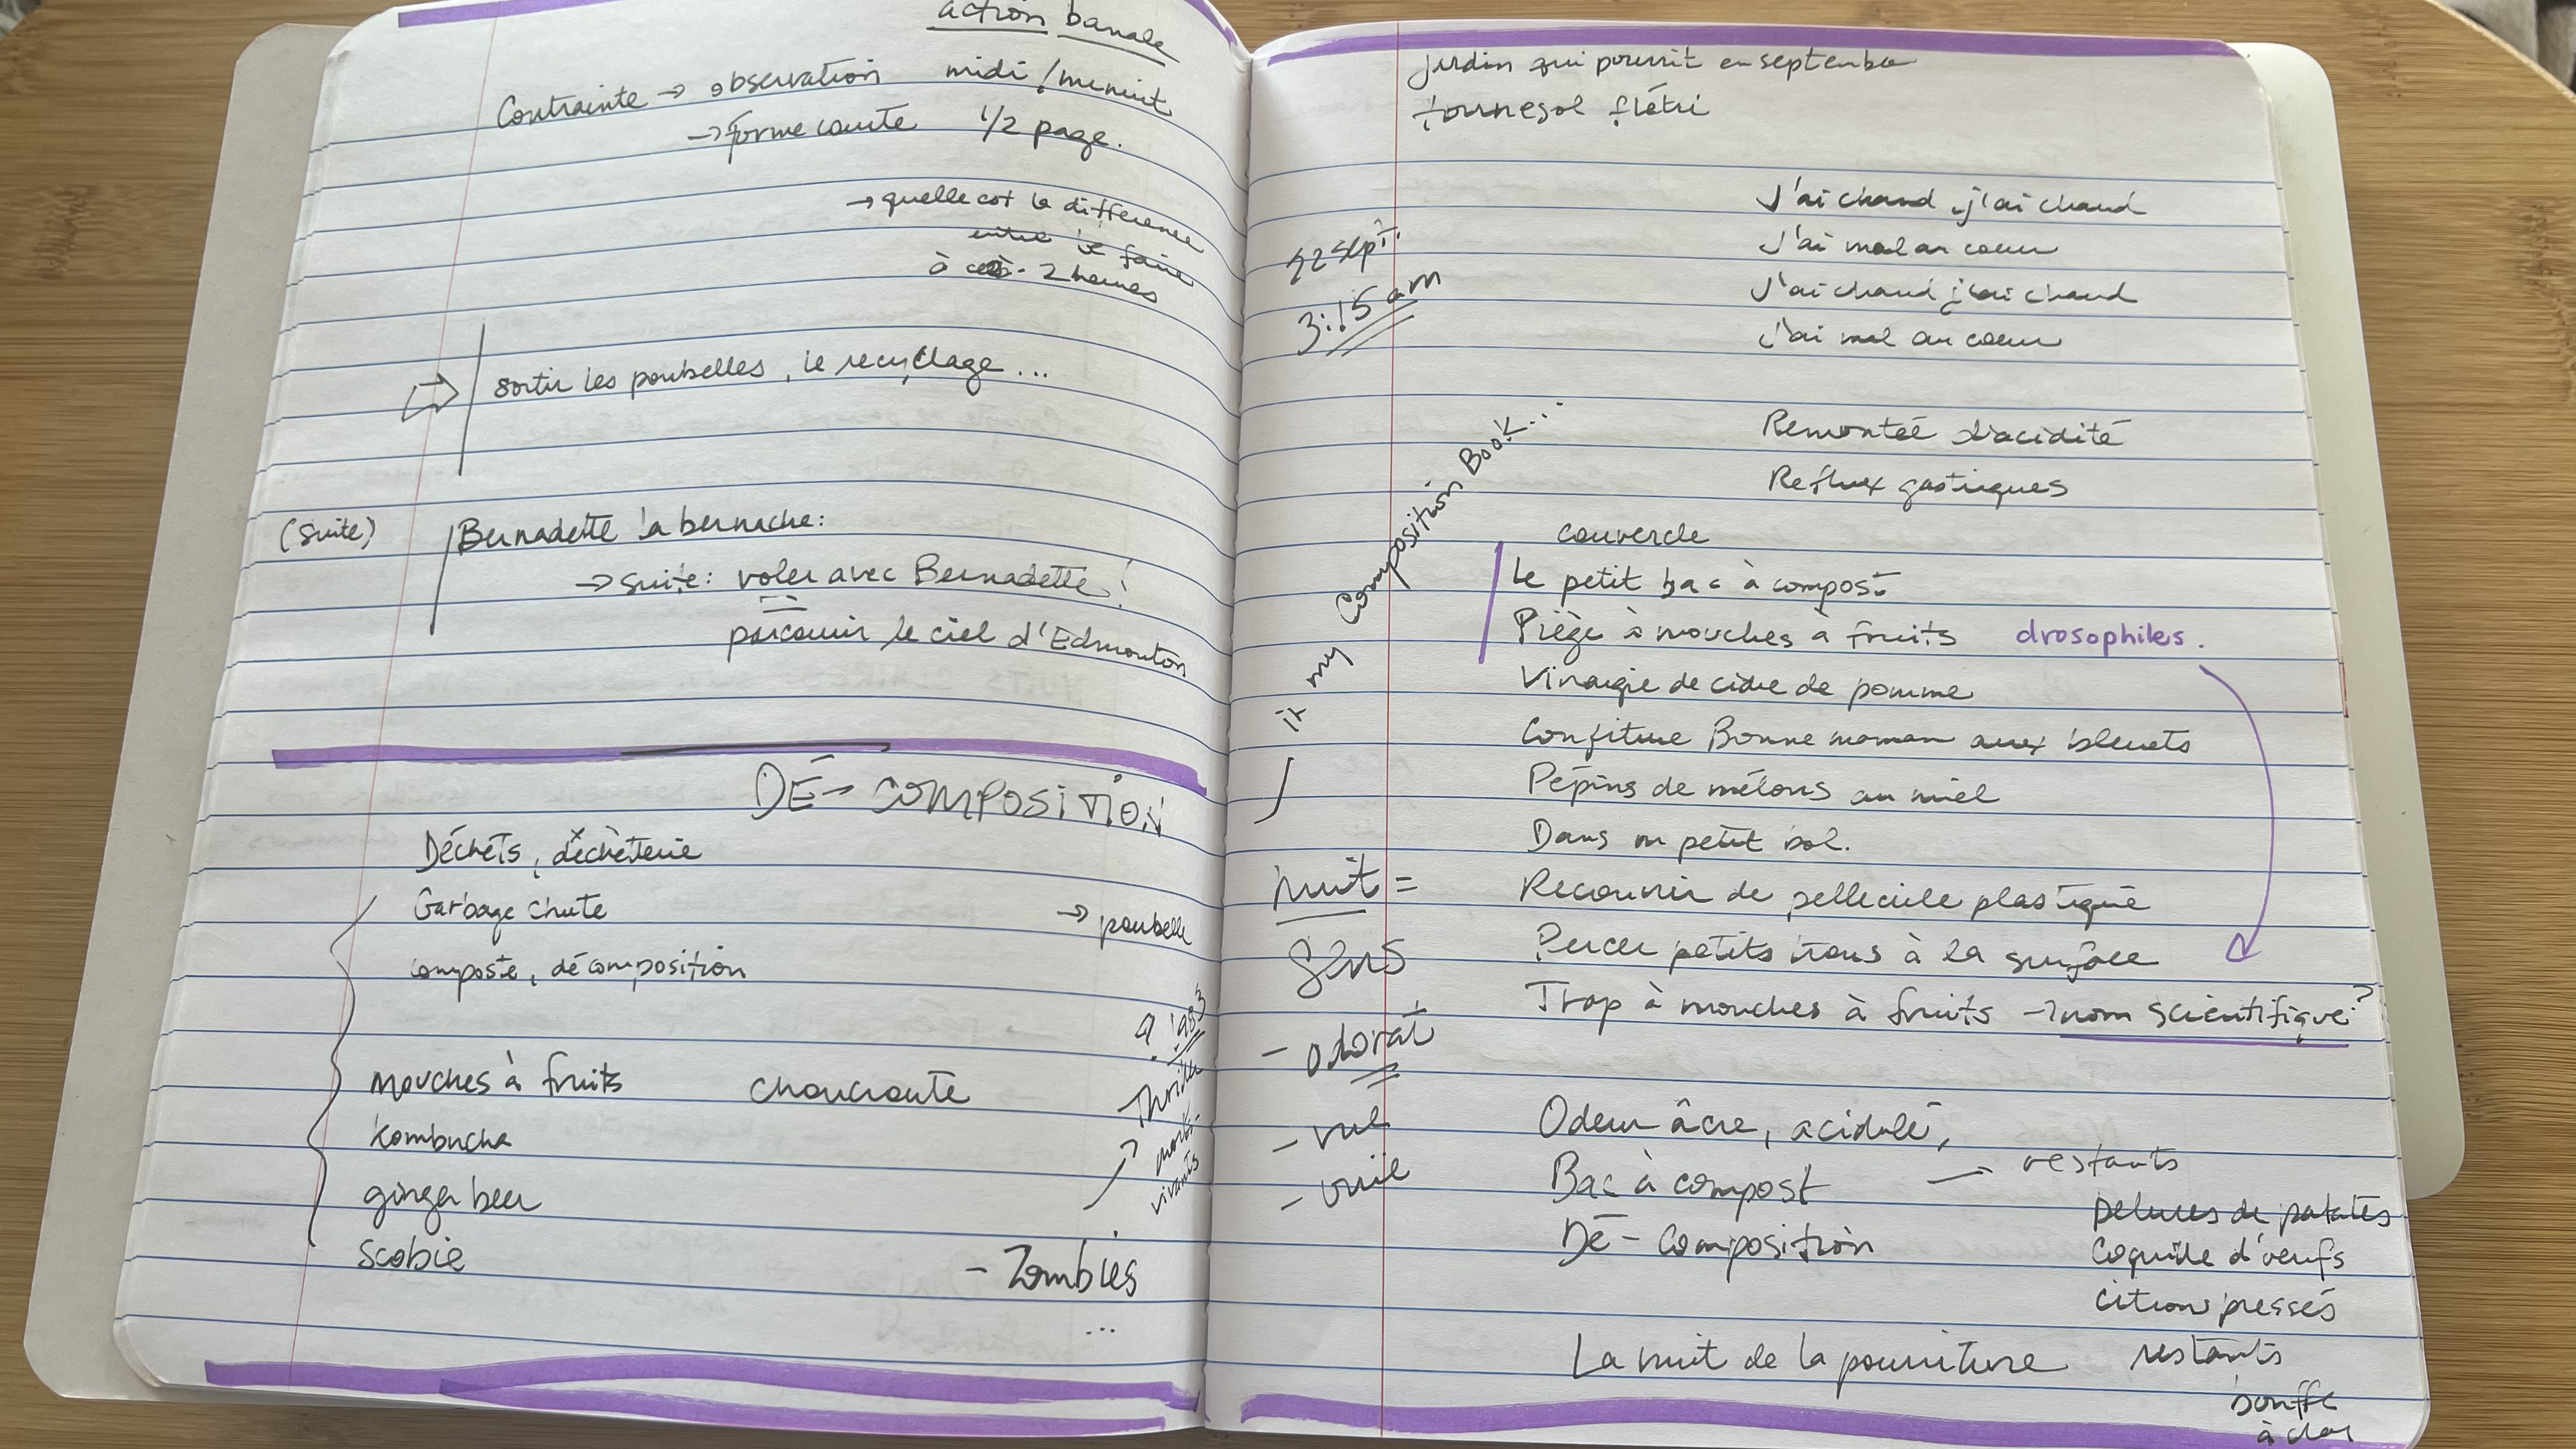 action banale
Contrainte → observation midi / minuit
→ forme courte 1/2 page.
→ quelle est la différence
entre le faire
à ces 2 heures
sortir les poubelles, le recyclage ...
(suite) Bernadette la bernache :
→ suite : voler avec Bernadette !
parcourir le ciel d'Edmonton
DÉ-COMPOSITION
Déchets, déchèterie
Garbage chute → poubelle
composte, décomposition
mouches à fruits choucroute
Kombucha
ginger beer
Scobie
1983
Thriller
morts-
vivants
- Zombies
...
jardin qui pourrit en septembre
tournesol flétri
22 sept.
3:15 am
J'ai chaud j'ai chaud
J'ai mal au coeur
J'ai chaud j'ai chaud
J'ai mal au coeur
Remontée d'acidité
Reflux gastriques
it my Composition Book...
couvercle
Le petit bac à compost
Piège à mouches à fruits drosophiles.
Vinaigre de cidre de pomme
Confiture Bonne maman aux bleuets
Pépins de melons au miel
Dans un petit bol.
Recouvrir de pellicule plastique
Percer petits trous à la surface
Trap à mouches à fruits → nom scientifique ?
nuit =
Sens
- odorat
- vue
- ouïe
Odeur âcre, acidulé,
Bac à compost — restants
Dé-composition
pelures de patates
Coquille d'oeufs
citrons pressés
restants
bouffe
à
La nuit de la pourriture